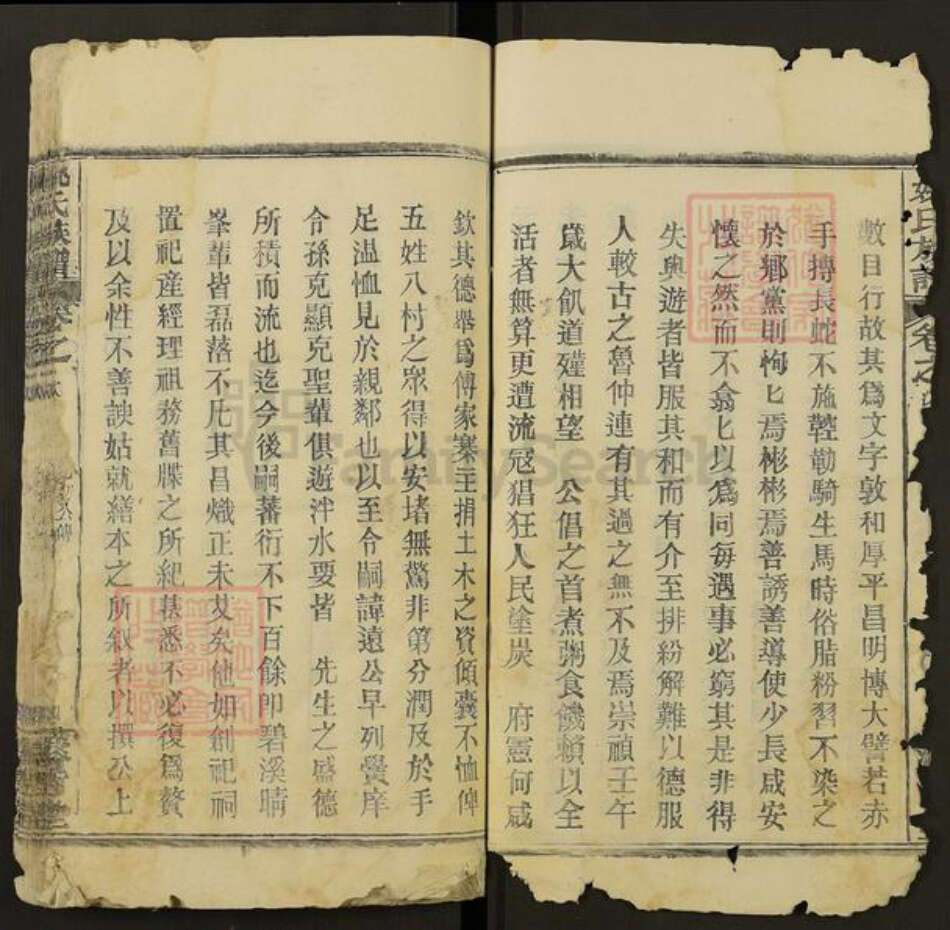 數目行故其爲文字敦和厚平昌明博大譬若赤
手搏長蛇不施鞚勒騎生馬時俗脂粉習不染之
於鄉黨則恂匕焉彬彬焉善誘善導使少長咸安
懷之然而不翕匕以爲同每遇事必窮其是非得
失與遊者皆服其和而有介至排紛解難以德服
人較古之魯仲連有其過之無不及焉崇禎壬午
歲大飢道殣相望 公倡之首煮粥食饑賴以全
活者無算更遭流寇猖狂人民塗炭 府憲何咸
欽其德舉爲傅家寨主捐土木之資傾囊不恤俾
五姓八村之眾得以安堵無驚非第分潤及於手
足溫恤見於親鄰也以至令嗣諱遠公早列黌庠
令孫克顯克聖輩俱遊泮水要皆 先生之盛德
所積而流也迄今後嗣蕃衍不下百餘即碧溪晴
峯輩皆磊落不凡其昌熾正未艾矣他如創祀祠
置祀產經理祖務舊牒之所紀甚悉不必復爲贅
及以余性不善諛姑就繕本之所叙者以撰公上
氏族譜
FamilySearch